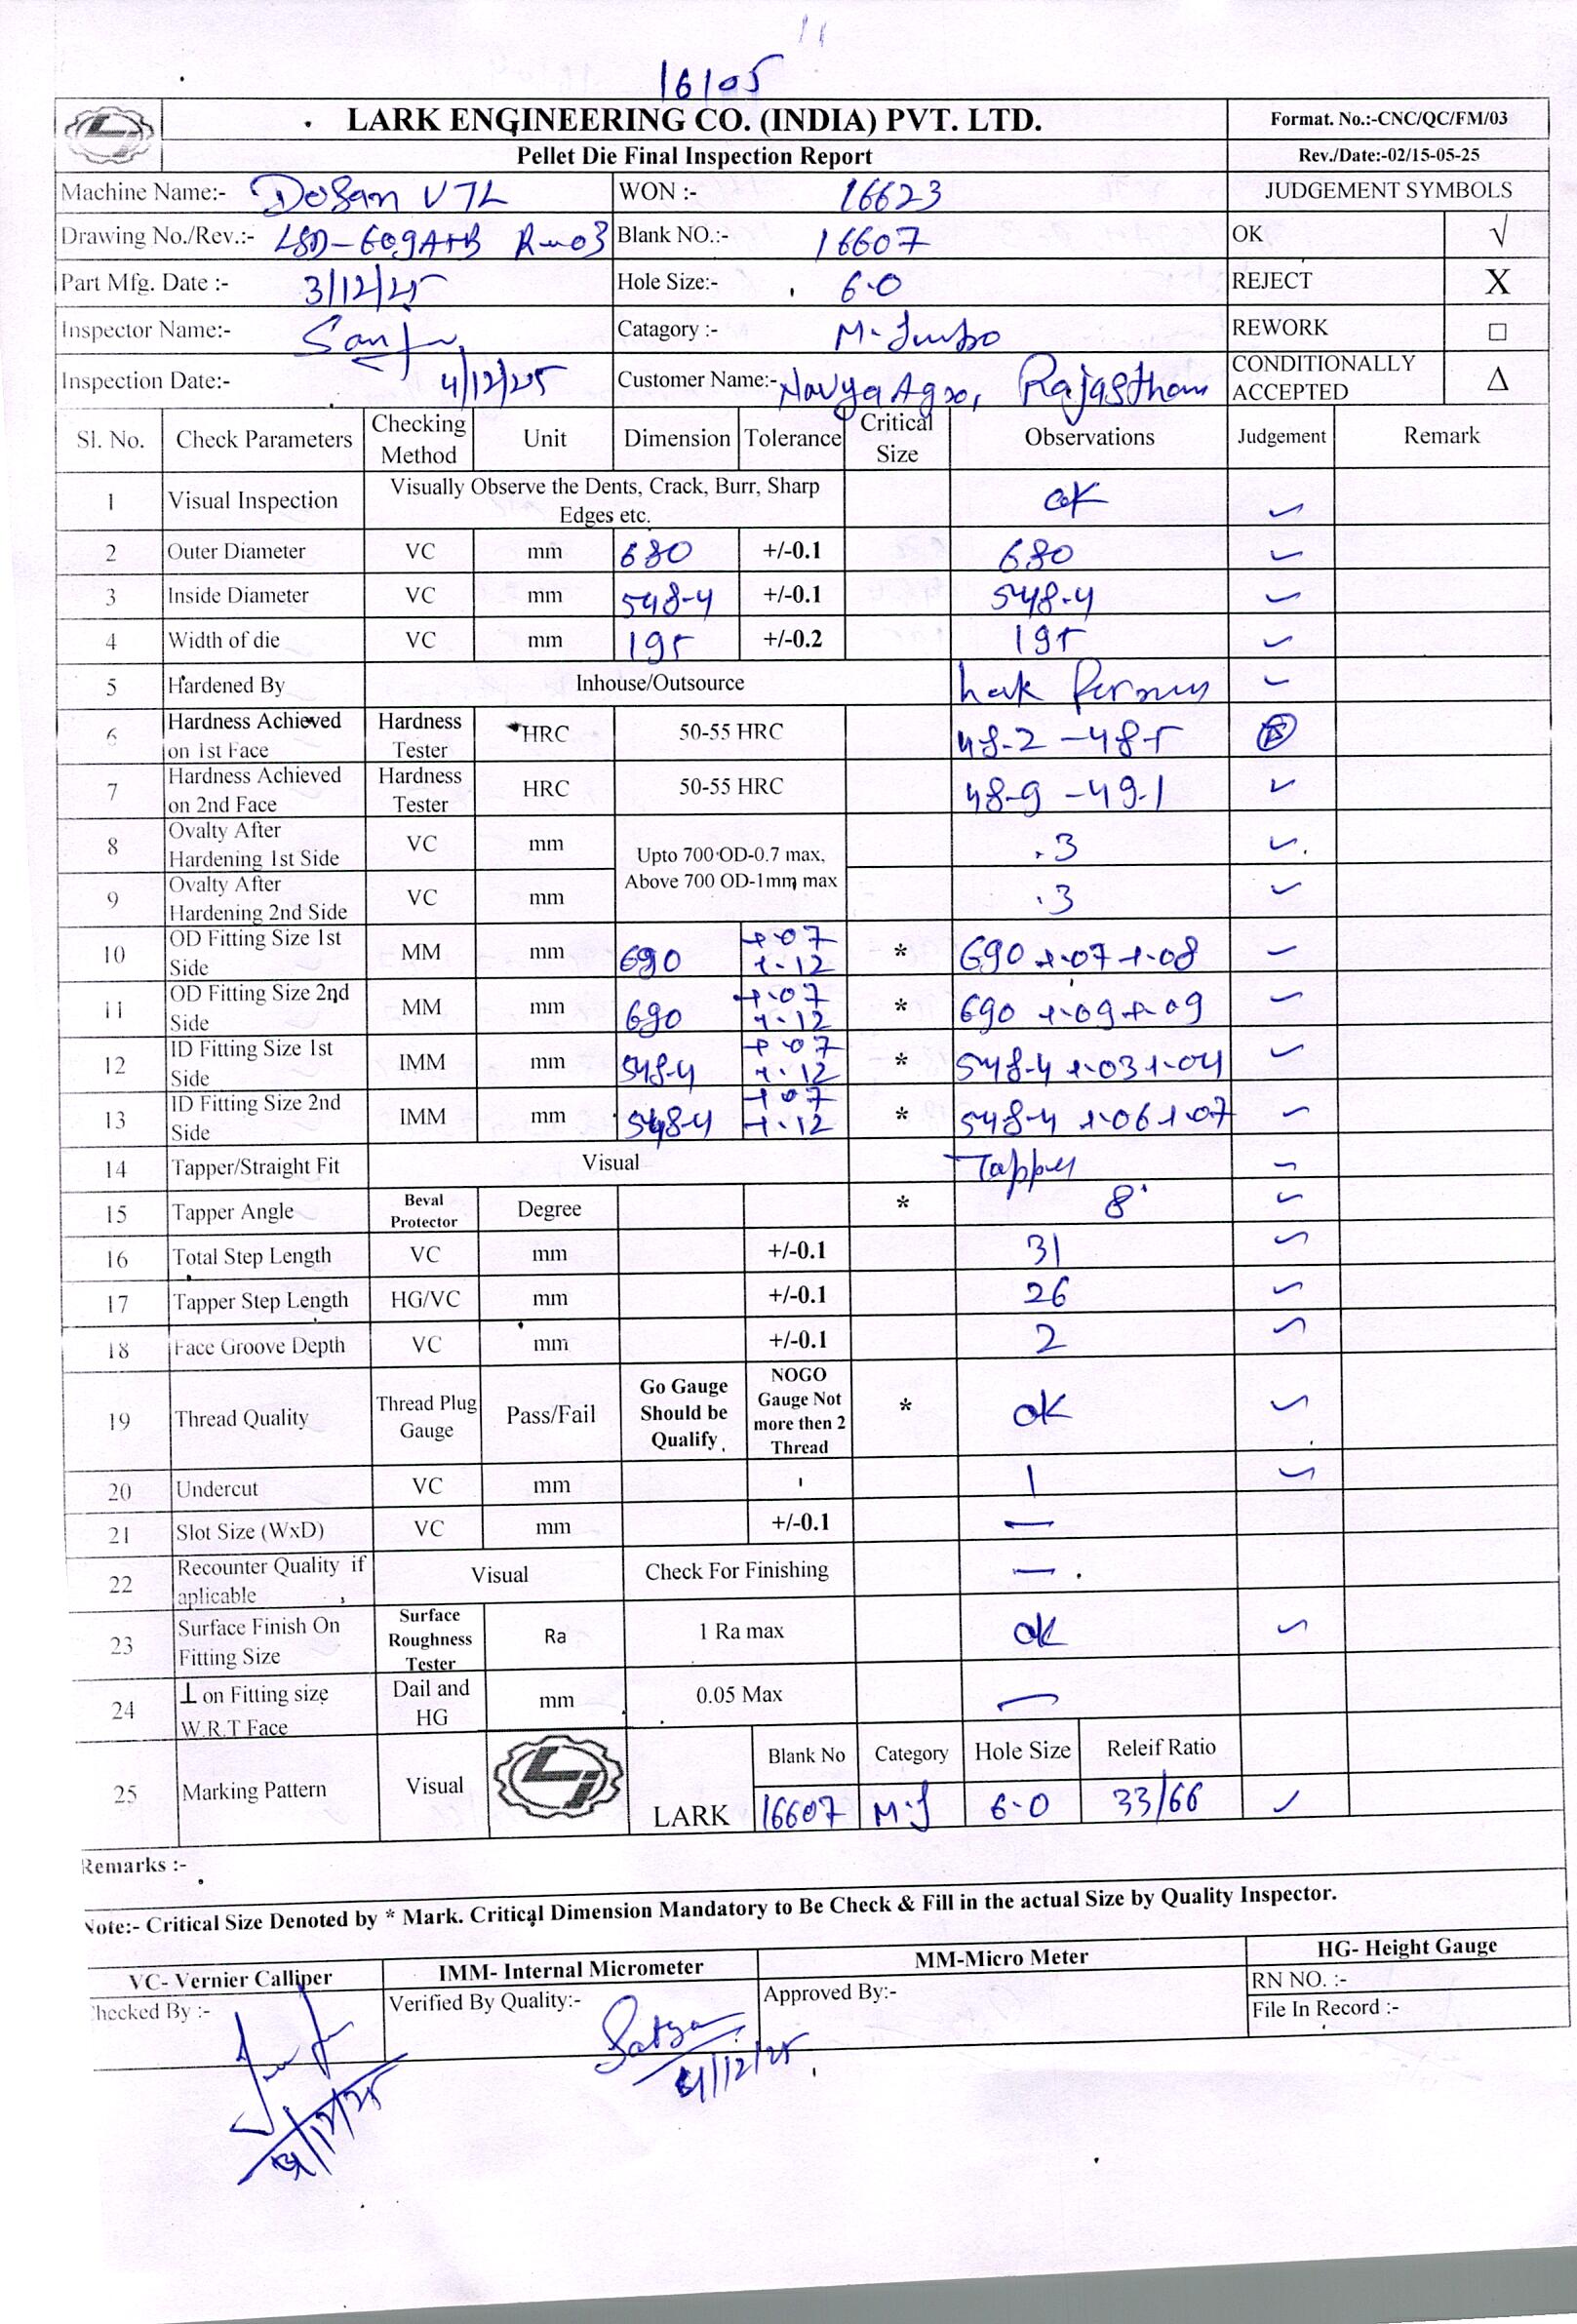 16105
LARK ENGINEERING CO. (INDIA) PVT. LTD. Format. No.:-CNC/QC/FM/03
Pellet Die Final Inspection Report Rev./Date:-02/15-05-25
Machine Name:- Dosan VTL WON :- 16623 JUDGEMENT SYMBOLS
Drawing No./Rev.:- LSD-609A+B R-03 Blank NO.:- 16607 OK √
Part Mfg. Date :- 3/12/25 Hole Size:- 6.0 REJECT X
Inspector Name:- Catagory :- M-Jumbo REWORK □
Inspection Date:- 4/12/25 Customer Name:- Navya Agro, Rajasthan CONDITIONALLY ACCEPTED Δ
Sl. No. Check Parameters Checking Method Unit Dimension Tolerance Critical Size Observations Judgement Remark
1 Visual Inspection Visually Observe the Dents, Crack, Burr, Sharp Edges etc. ok ✓
2 Outer Diameter VC mm 680 +/-0.1 680 ✓
3 Inside Diameter VC mm 548-4 +/-0.1 548-4 ✓
4 Width of die VC mm 195 +/-0.2 195 ✓
5 Hardened By Inhouse/Outsource ✓
6 Hardness Achieved on 1st Face Hardness Tester HRC 50-55 HRC 48-2 -48-5
7 Hardness Achieved on 2nd Face Hardness Tester HRC 50-55 HRC 48-9 -49-1 ✓
8 Ovalty After Hardening 1st Side VC mm Upto 700 OD-0.7 max, Above 700 OD-1mm max .3 ✓
9 Ovalty After Hardening 2nd Side VC mm .3 ✓
10 OD Fitting Size 1st Side MM mm 690 +.07 +.12 * 690 +.07 +.08 ✓
11 OD Fitting Size 2nd Side MM mm 690 +.07 +.12 * 690 +.09 +.09 ✓
12 ID Fitting Size 1st Side IMM mm 548-4 +.07 +.12 * 548-4 +.03 +.04 ✓
13 ID Fitting Size 2nd Side IMM mm 548-4 +.07 +.12 * 548-4 +.06 +.07 ✓
14 Tapper/Straight Fit Visual Tapper ✓
15 Tapper Angle Beval Protector Degree * 8° ✓
16 Total Step Length VC mm +/-0.1 31 ✓
17 Tapper Step Length HG/VC mm +/-0.1 26 ✓
18 Face Groove Depth VC mm +/-0.1 2 ✓
19 Thread Quality Thread Plug Gauge Pass/Fail Go Gauge Should be Qualify NOGO Gauge Not more then 2 Thread * ok ✓
20 Undercut VC mm 1 ✓
21 Slot Size (WxD) VC mm +/-0.1 —
22 Recounter Quality if aplicable Visual Check For Finishing —
23 Surface Finish On Fitting Size Surface Roughness Tester Ra 1 Ra max ok ✓
24 ⊥ on Fitting size W.R.T Face Dail and HG mm 0.05 Max —
25 Marking Pattern Visual LARK Blank No Category Hole Size Releif Ratio
16607 M.J 6.0 33/66 ✓
Remarks :-
Note:- Critical Size Denoted by * Mark. Critical Dimension Mandatory to Be Check & Fill in the actual Size by Quality Inspector.
VC- Vernier Calliper IMM- Internal Micrometer MM-Micro Meter HG- Height Gauge
Checked By :- Verified By Quality:- Approved By:- RN NO. :-
File In Record :-
Satya
4/12/25